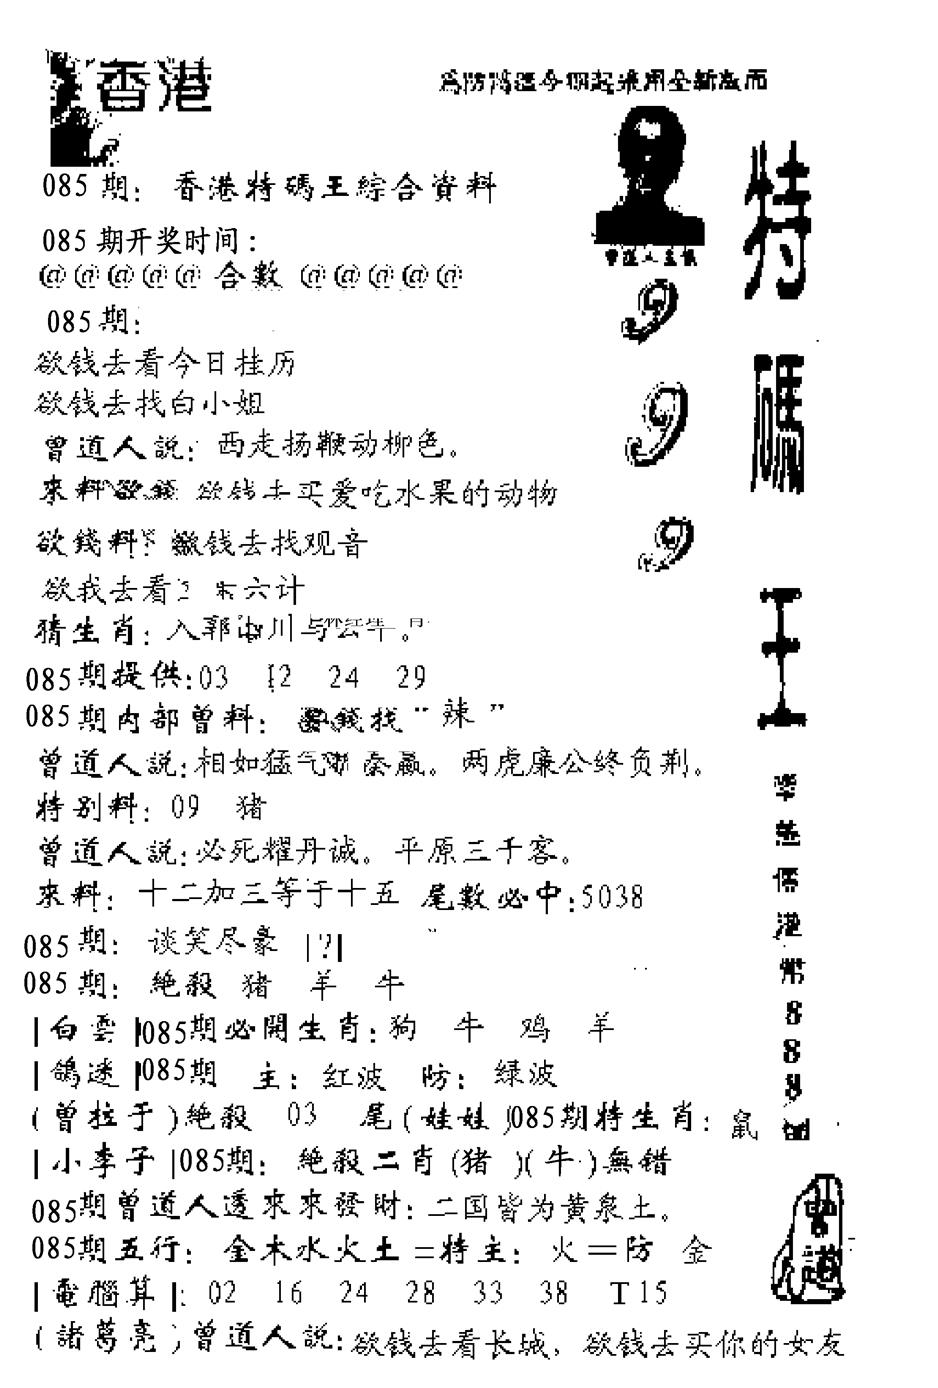 香港
為防
今期起采用全新版面
085期：香港特碼王綜合資料
085期开奖时间：
@@@@@合數@@@@@
085期：
欲钱去看今日挂历
欲钱去找白小姐
曾道人説：西走扬鞭动柳色。
來料 欲钱去买爱吃水果的动物
欲錢料：欲钱去找观音
欲我去看 六计
猜生肖：入郭 川与
085期提供:03 12 24 29
085期内部曾料： 錢找“辣”
曾道人説:相如猛气 秦赢。两虎廉公终负荆。
特别料：09 猪
曾道人説:必死耀丹诚。平原三千客。
來料：十二加三等于十五 尾數必中:5038
085期：谈笑尽豪 |?|
085期：絶殺 猪 羊 牛
|白雲|085期必開生肖:狗 牛 鸡 羊
|鴿迷|085期 主：红波 防：绿波
(曾拉于)絶殺 03 尾(娃娃)085期特生肖：鼠
|小李子|085期：絶殺二肖(猪)(牛)無错
085期曾道人透來來發財：二国皆为黄泉土。
085期五行：金木水火土=特主：火=防 金
|電腦算|：02 16 24 28 33 38 T15
(諸葛亮)曾道人説:欲钱去看长城，欲钱去买你的女友
特碼王
曾道人
999
港幣888
曾道